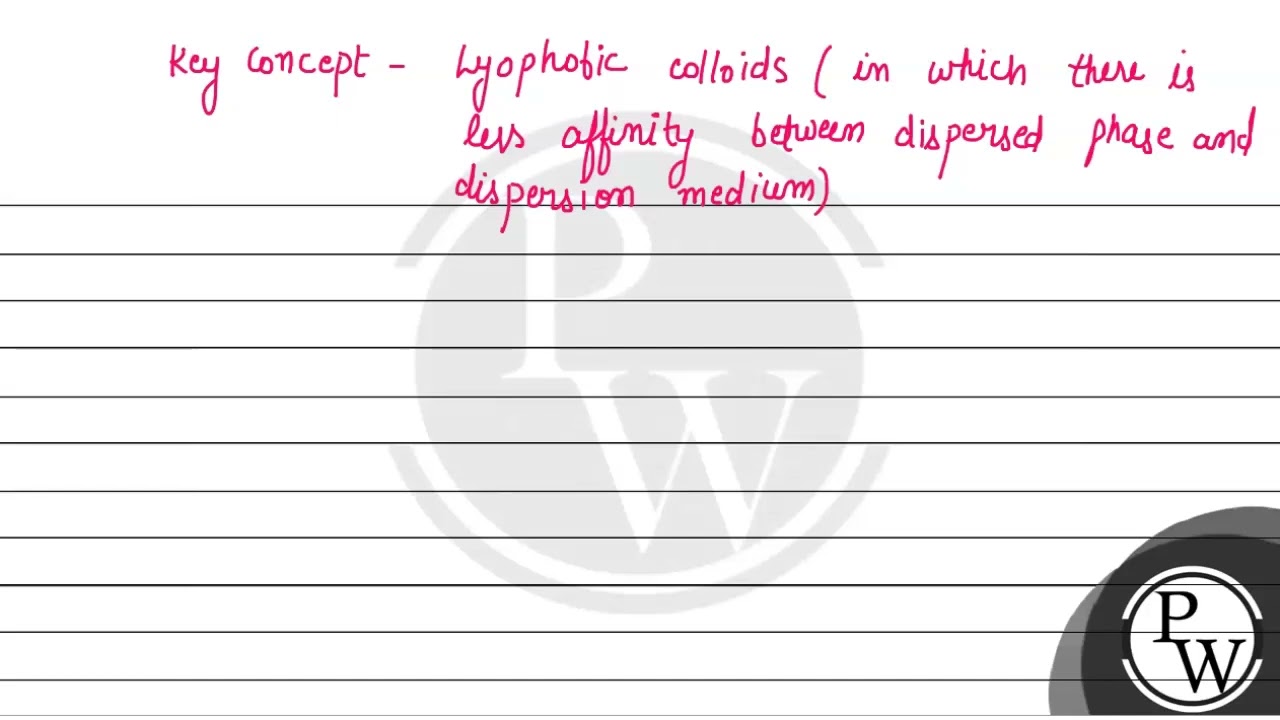 Key Concept - Lyophobic colloids ( in which there is
less affinity between dispersed phase and
dispersion medium)
P
W
P
W